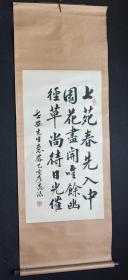 上苑春先入中
園花盡開唯餘幽
徑草尚待日光催
先生